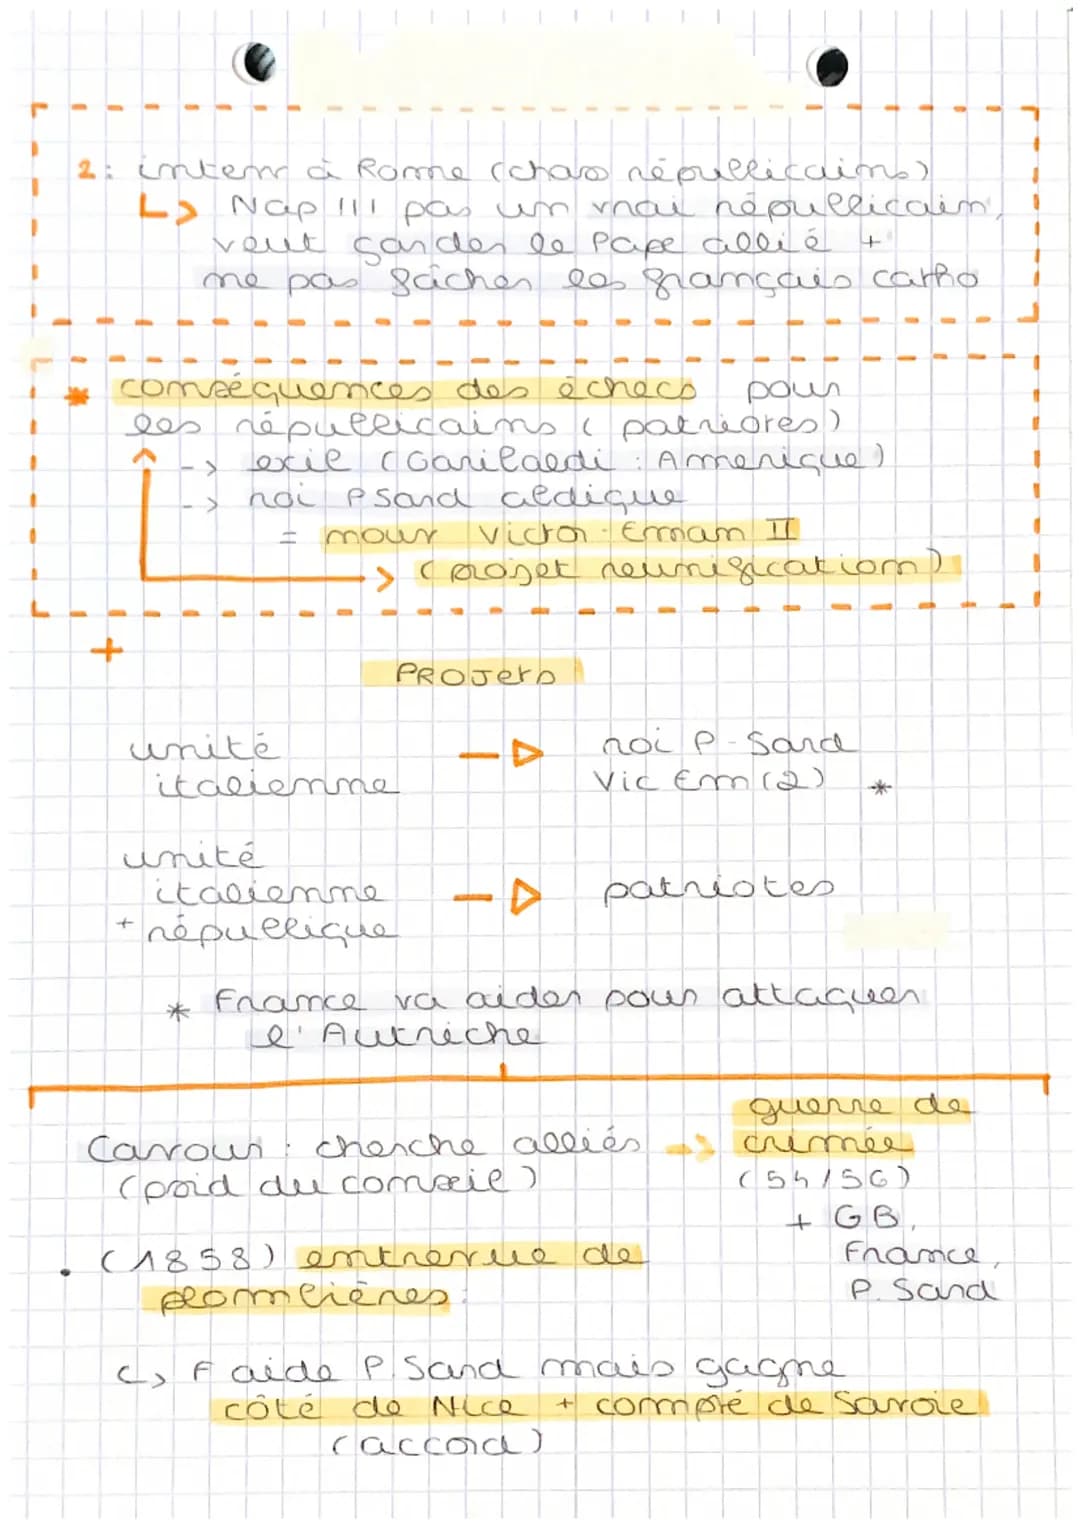 2: interv à Rome (chass républicains)
↳ Nap III pas un vrai républicain,
veut garder le Pape allié +
ne pas fâcher les français catho
* conséquences des échecs pour
les républicains (patriotes)
-> exil (Garibaldi : Amerique)
-> roi P Sard abdique
= nouv Victor-Emman II
(projet reunification)
+
PROJETS
unité italienne -▷ roi P-Sard
Vic Em (2) *
unité
italienne -▷ patriotes
+ république
* France va aider pour attaquer
l'Autriche
Cavour : cherche alliés -> guerre de crimée
(poid du conseil) (54/56)
+ GB,
France,
P. Sard
. (1858) entrevue de
plombières :
↳ F aide P. Sard mais gagne
côté de Nice + compté de Savoie
(accord)